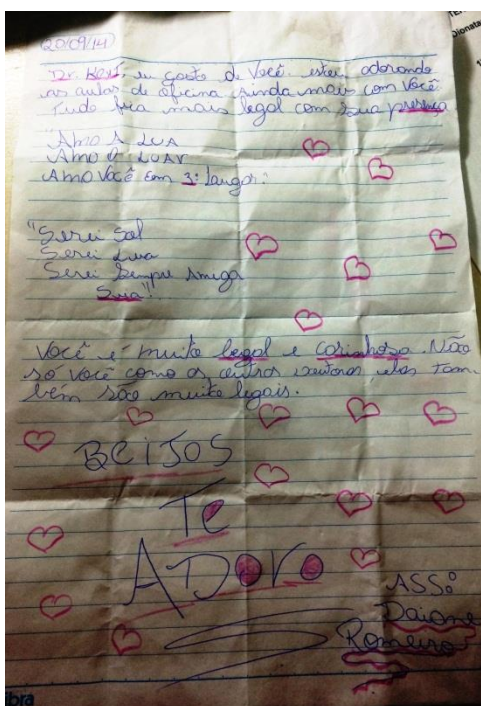 20/09/14
eu gosto de Você. estou adorando
as aulas de oficina ainda mais com Você
Tudo fica mais legal com sua presença
"Amo A LUA
Amo O LUAR
Amo Você em 3º lugar.
"Serei Sol
Serei Lua
Serei Sempre Amiga
Sua"!
Você é muito legal e carinhosa. Não
só você como as outras elas tam-
bém são muito legais.
BEIJOS
Te
ADORO
ASS:
Daiane
Romeiro
ibra
Dionata